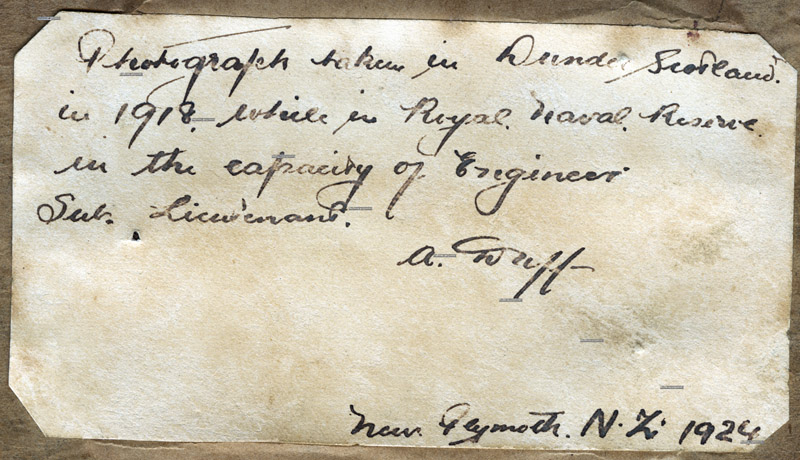 Photograph taken in Dundee Scotland.
in 1918, while in Royal Naval Reserve.
in the capacity of Engineer
Sub. Lieutenant.
A. Duff
New Plymoth. N.Z. 1924